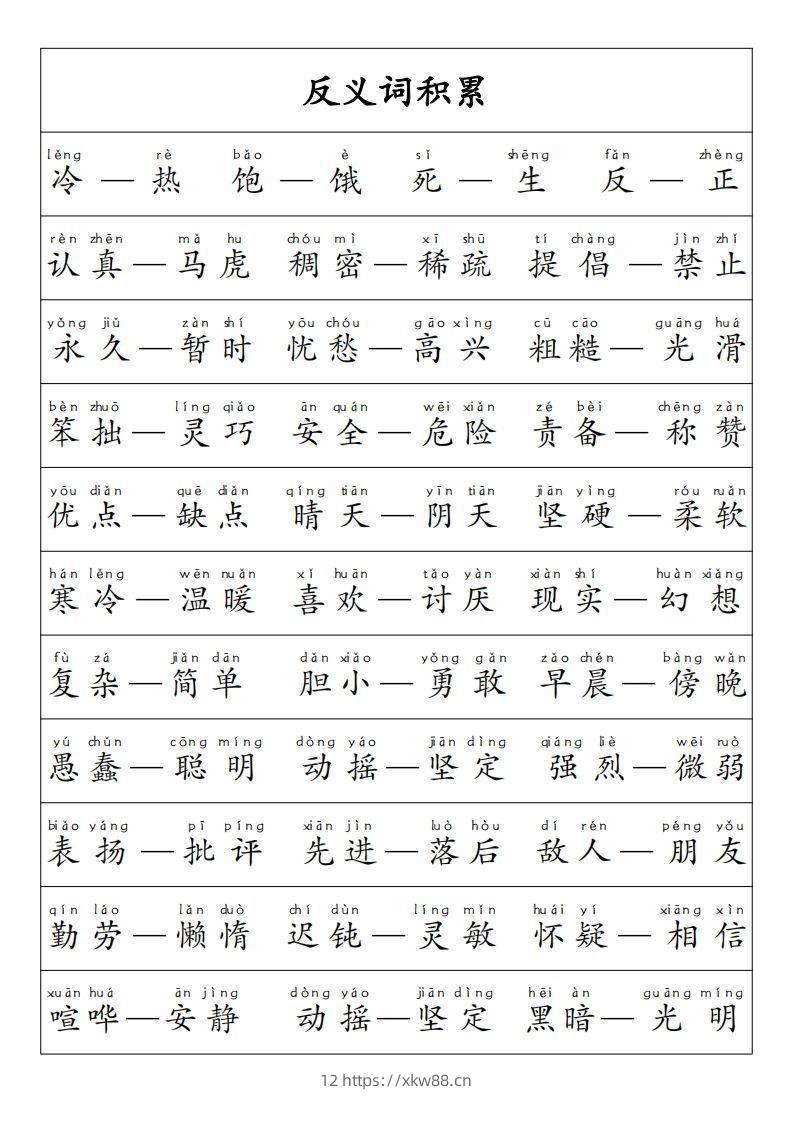 反义词积累
lěng rè bǎo è sǐ shēng fǎn zhèng
冷 — 热 饱 — 饿 死 — 生 反 — 正
rèn zhēn mǎ hu chóu mì xī shū tí chàng jìn zhǐ
认真 — 马虎 稠密 — 稀疏 提倡 — 禁止
yǒng jiǔ zàn shí yōu chóu gāo xìng cū cāo guāng huá
永久 — 暂时 忧愁 — 高兴 粗糙 — 光滑
bèn zhuō líng qiǎo ān quán wēi xiǎn zé bèi chēng zàn
笨拙 — 灵巧 安全 — 危险 责备 — 称赞
yōu diǎn quē diǎn qíng tiān yīn tiān jiān yìng róu ruǎn
优点 — 缺点 晴天 — 阴天 坚硬 — 柔软
hán lěng wēn nuǎn xǐ huān tǎo yàn xiàn shí huàn xiǎng
寒冷 — 温暖 喜欢 — 讨厌 现实 — 幻想
fù zá jiǎn dān dǎn xiǎo yǒng gǎn zǎo chén bàng wǎn
复杂 — 简单 胆小 — 勇敢 早晨 — 傍晚
yú chǔn cōng míng dòng yáo jiān dìng qiáng liè wēi ruò
愚蠢 — 聪明 动摇 — 坚定 强烈 — 微弱
biǎo yáng pī píng xiān jìn luò hòu dí rén péng yǒu
表扬 — 批评 先进 — 落后 敌人 — 朋友
qín láo lǎn duò chí dùn líng mǐn huái yí xiāng xìn
勤劳 — 懒惰 迟钝 — 灵敏 怀疑 — 相信
xuān huá ān jìng dòng yáo jiān dìng hēi àn guāng míng
喧哗 — 安静 动摇 — 坚定 黑暗 — 光明
12 https://xkw88.cn